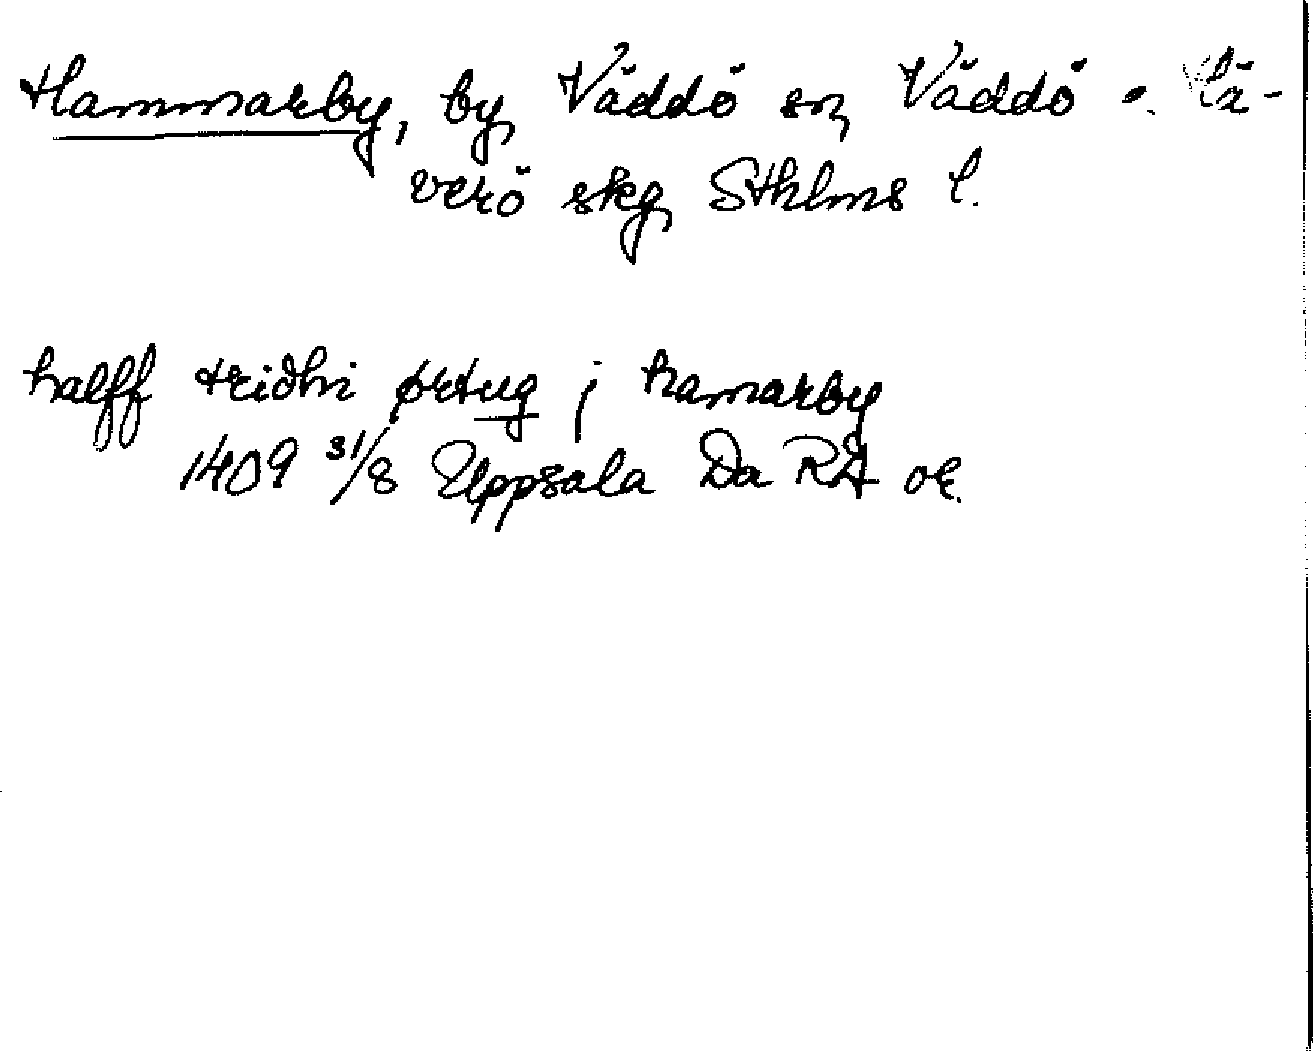 Hammarby, by, Väddö sn, Väddö o. Hä-
verö skg, Sthlms l.
halff tridhi ørtug j hamarby
1409 31/8 Uppsala Da RA or.